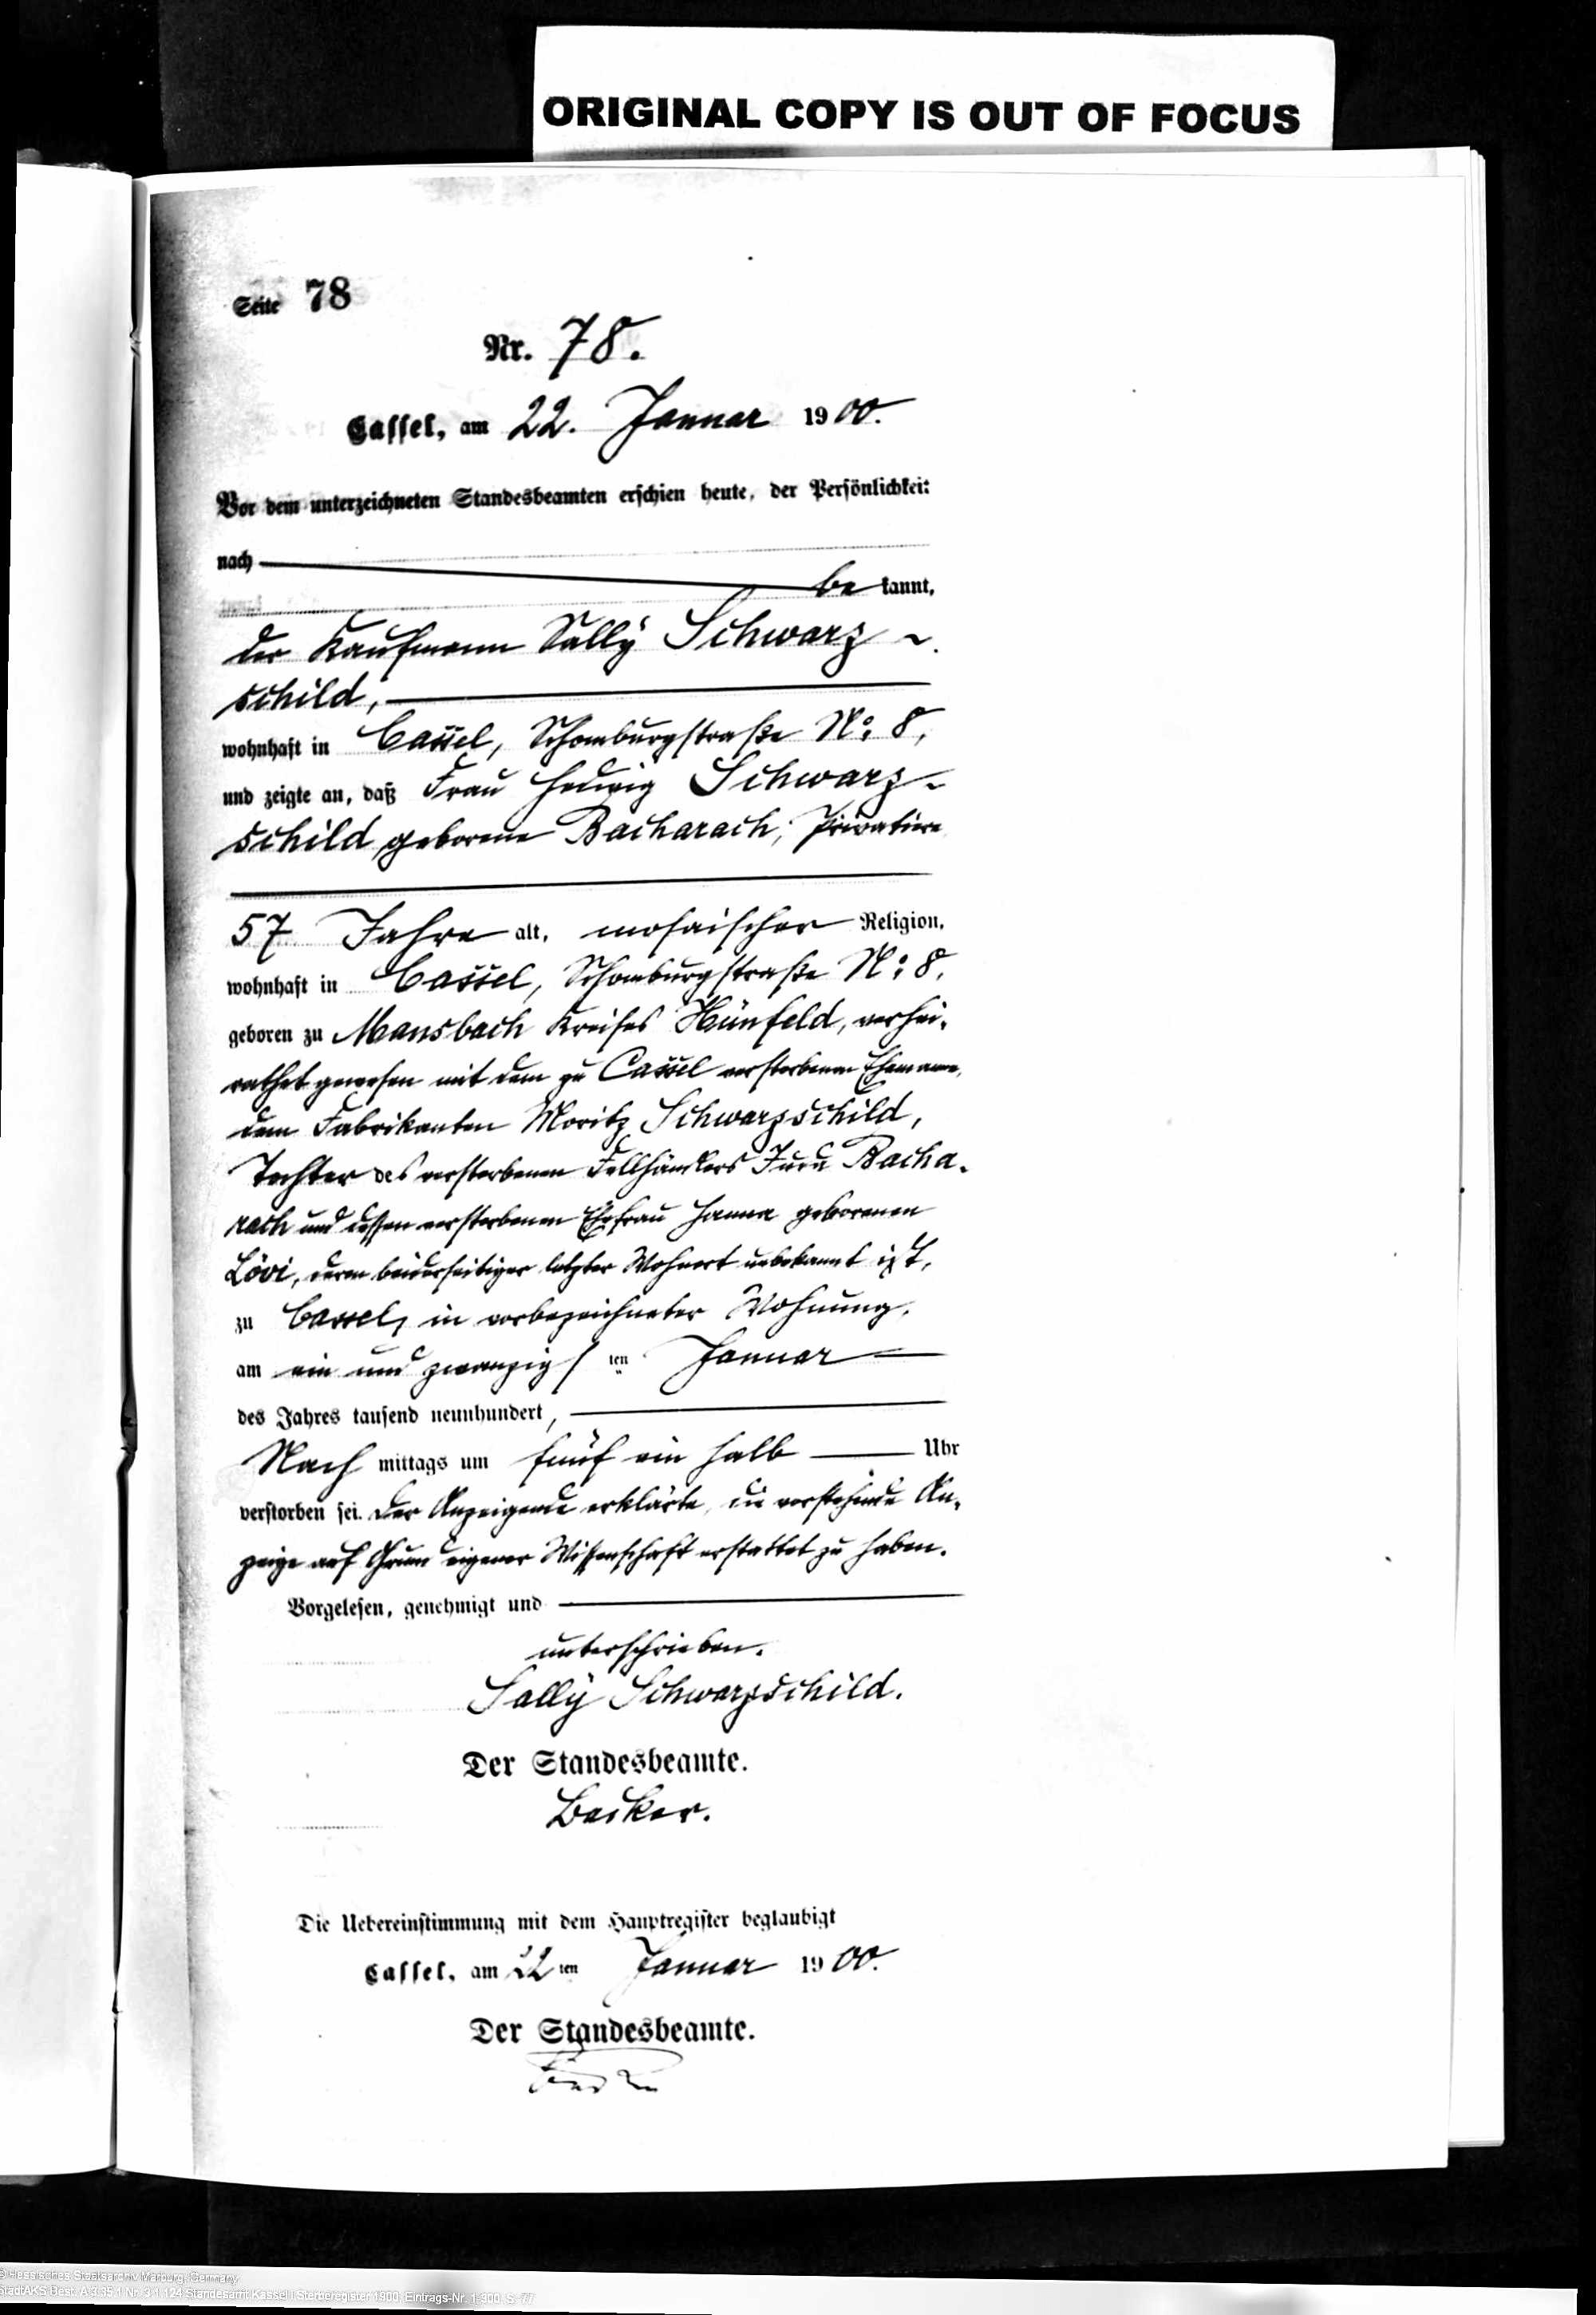 ORIGINAL COPY IS OUT OF FOCUS
Seite 78
Nr. 78.
Cassel, am 22. Januar 1900.
Vor dem unterzeichneten Standesbeamten erschien heute, der Persönlichkeit
nach
be kannt,
der Kaufmann Sally Schwarz-
schild,
wohnhaft in Cassel, Schomburgstraße No: 8,
und zeigte an, daß Frau Hedwig Schwarz-
schild geborene Bacharach, Privatiere
57 Jahre alt, mosaischer Religion,
wohnhaft in Cassel, Schomburgstraße No: 8,
geboren zu Mansbach Kreises Hünfeld, verhei-
rathet gewesen mit dem zu Cassel verstorbenen Ehemanne,
dem Fabrikanten Moritz Schwarzschild,
Tochter des verstorbenen Fellhändlers Juda Bacha-
rach und dessen verstorbenen Ehefrau Hanna geborenen
Lövi, deren beiderseitiger letzter Wohnort unbekannt ist,
zu Cassel, in vorbezeichneter Wohnung,
am ein und zwanzigsten Januar
des Jahres tausend neunhundert,
Nach mittags um fünf ein halb Uhr
verstorben sei. Der Anzeigende erklärte, die vorstehende An-
zeige auf Grund eigener Wissenschaft erstattet zu haben.
Vorgelesen, genehmigt und
unterschrieben.
Sally Schwarzschild.
Der Standesbeamte.
Becker.
Die Uebereinstimmung mit dem Hauptregister beglaubigt
Cassel, am 22ten Januar 1900.
Der Standesbeamte.
© Hessisches Staatsarchiv Marburg, Germany
StadtAKS Best. A 3.35.1 Nr. 3.1.124 Standesamt Kassel I Sterberegister 1900, Eintrags-Nr. 1-900, S. 77